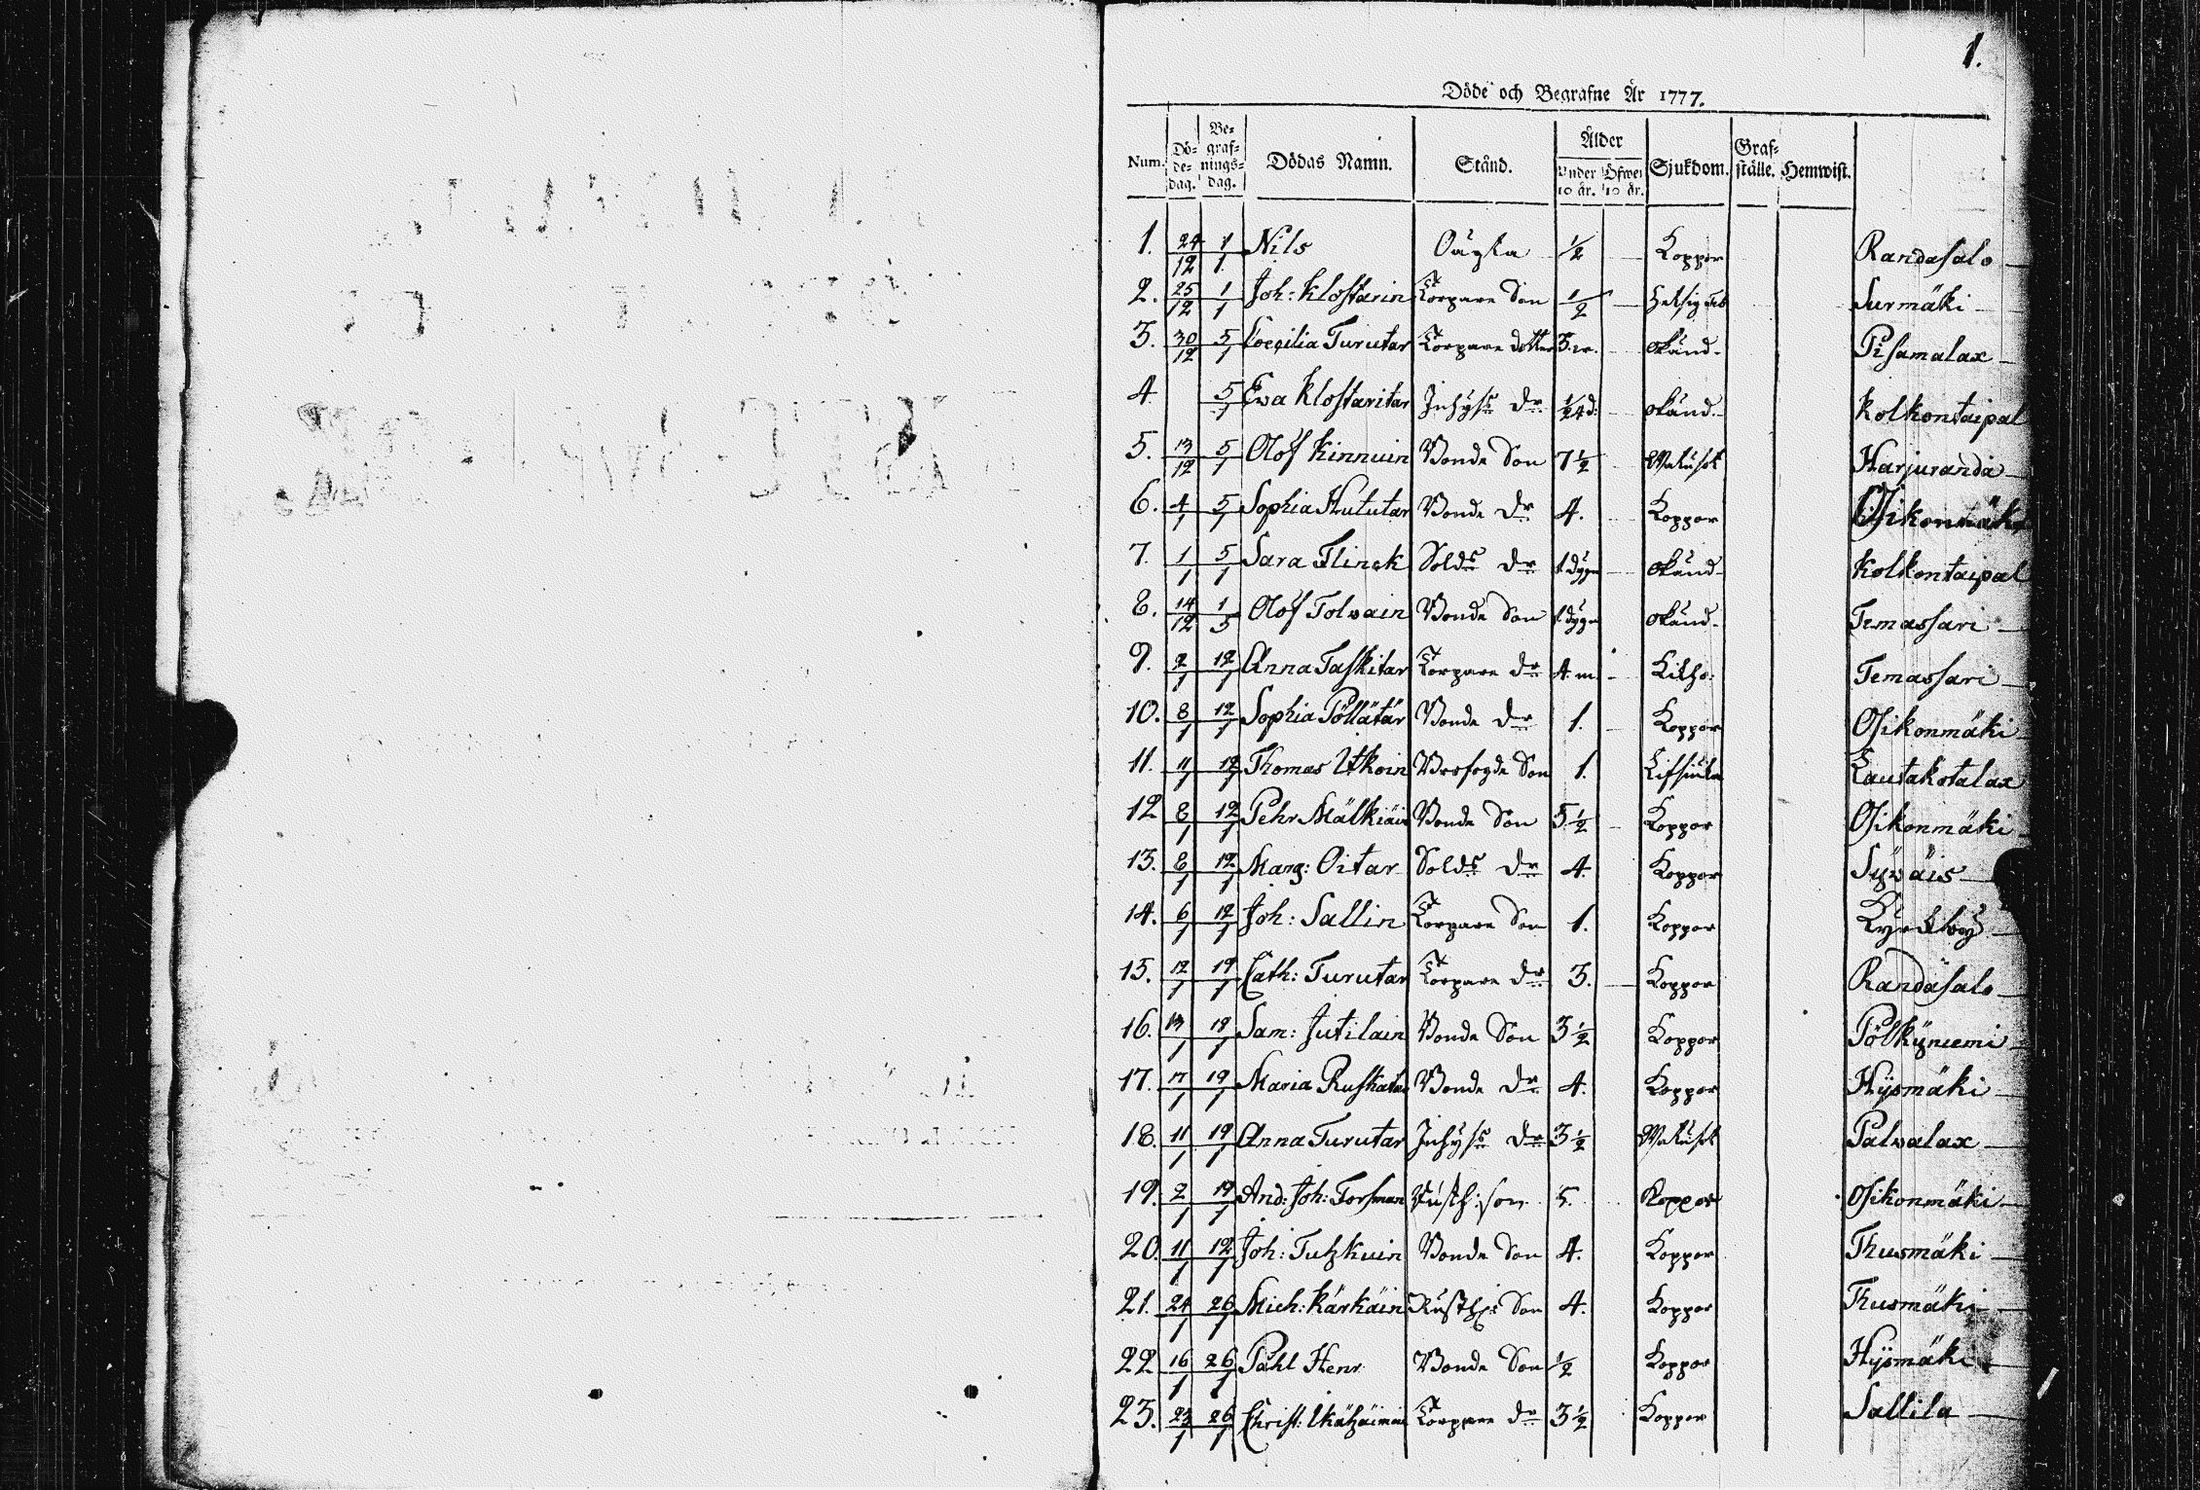 1.
Döde och Begrafne År 1777.
Num. Döde-dag. Begrafnings-dag. Dödas Namn. Stånd. Ålder Under 10 år. Öfwer 10 år. Sjukdom. Grafställe. Hemwist.
1. 24/12 1/1 Nils Oägta 1/2 Koppor Randasalo
2. 25/12 1/1 Joh: Klostarin Torpare Son 1/2 Surmäki
3. 30/12 5/1 Coecilia Turutar Torpare dotter 3. okänd. Pisamalax
4 5/1 Eva Klostaritar Inhys: dr okänd. Kolkontaipal
5. 13/12 5/1 Olof Kinnuin Bonde Son 7 1/2 Harjuranda
6. 4/1 5/1 Sophia Hututar Bonde dr 4. Koppor Osikonmäki
7. 1/1 5/1 Sara Flinck Solds dr 1 dygn okänd Kolkontaipal
8. 14/12 1/5 Olof Tolvain Bonde Son 1 dygn okänd. Temassari
9. 2/1 12/1 Anna Taskitar Torpare dr 4. m Kikho. Temassari
10. 8/1 12/1 Sophia Pöllätär Bonde dr 1. Koppor Osikonmäki
11. 11/1 12/1 Thomas Utkoin Son 1. Lautakotalax
12 8/1 12/1 Pehr Mälkiäin Bonde Son 5 1/2 Koppor Osikonmäki
13. 8/1 12/1 Marg: Oitar Solds dr 4. Koppor Syväis
14. 6/1 12/1 Joh: Sallin Torpare Son 1. Koppor Kyrckby
15. 12/1 19/1 Cath: Turutar Torpare dr 3. Koppor Randasalo
16. 13/1 18/1 Sam: Jutilain Bonde Son 3 1/2 Koppor Pölkyniemi
17. 17/1 19/1 Maria Ruskatar Bonde dr 4. Koppor Hysmäki
18. 11/1 19/1 Anna Turutar Inhys: dr 3 1/2 Palvalax
19. 2/1 19/1 And: Joh: Forsman Rusth: son 5. Koppor Osikonmäki
20. 11/1 12/1 Joh: Tuhkuin Bonde Son 4. Koppor Thusmäki
21. 24/1 26/1 Mich: Kärkäin Rusth: Son 4. Koppor Thusmäki
22 16/1 26/1 Påhl Henr. Bonde Son 1/2 Koppor Hysmäki
23. 23/1 26/1 Christ: Torpare dr 3 1/2 Koppor Sallila